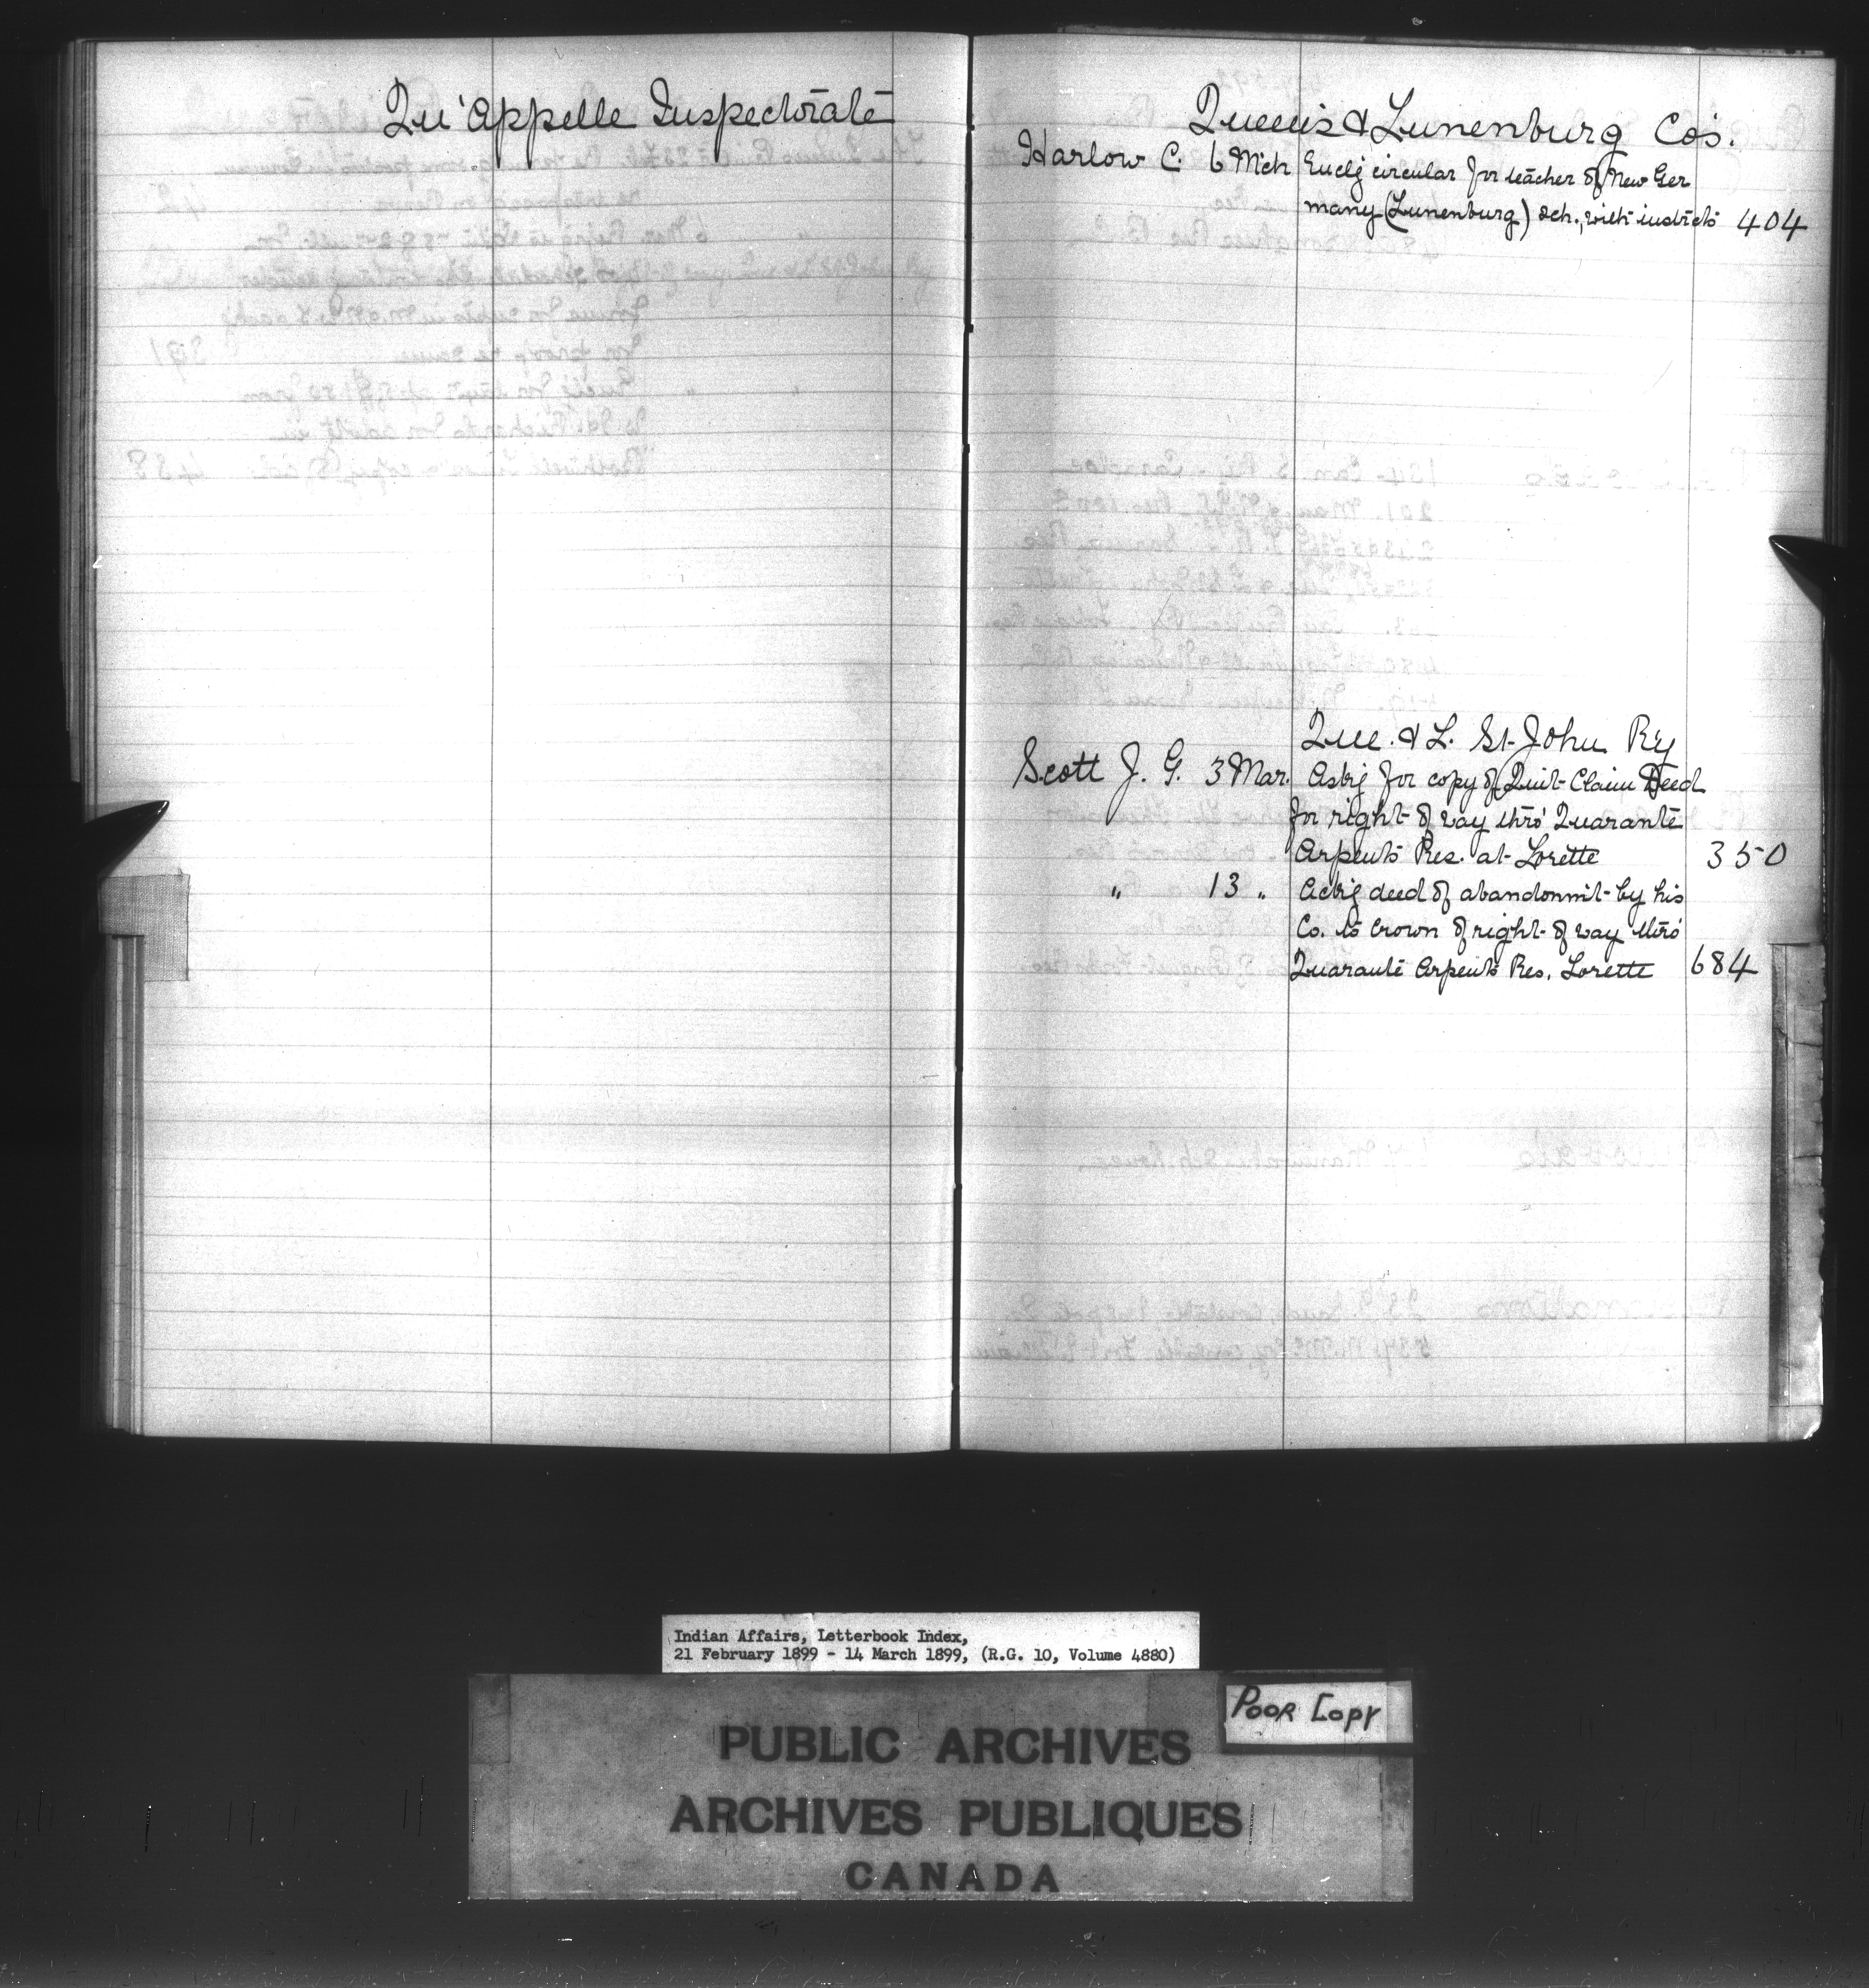 Qu'Appelle Inspectorate
Queen's & Lunenburg Co's.
Harlow C. 6 Mch Enclg circular for teacher of New Ger
many (Lunenburg) sch., with instrcts 404
Que. & L. St. John Ry
Scott J. G. 3 Mar. Askg for copy of Quit-Claim Deed
for right of way thro' Quarante
Arpents Res. at Lorette 350
" 13 " Ackg deed of abandonmt by his
Co. to Crown of right of way thro'
Quarante Arpents Res. Lorette 684
Indian Affairs, Letterbook Index,
21 February 1899 - 14 March 1899, (R.G. 10, Volume 4880)
POOR COPY
PUBLIC ARCHIVES
ARCHIVES PUBLIQUES
CANADA